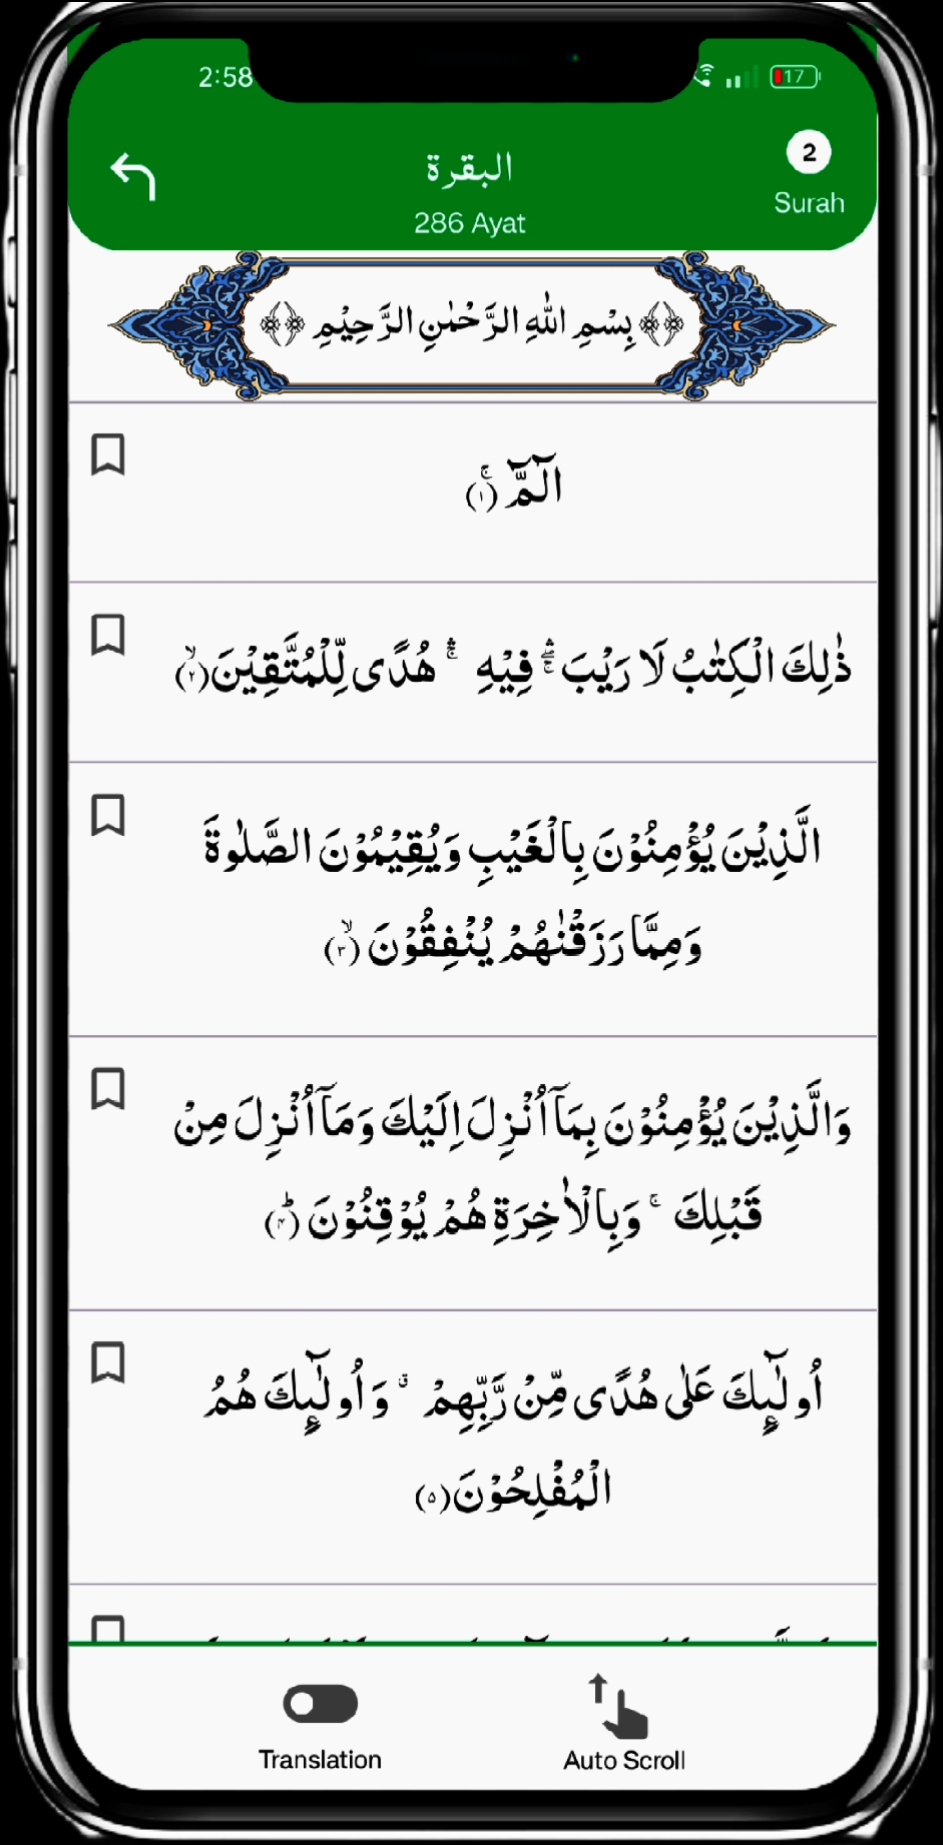 2:58
17
البقرة
286 Ayat
2
Surah
بِسْمِ اللهِ الرَّحْمٰنِ الرَّحِيْمِ
الٓمّٓ ۚ﴿۱﴾
ذٰلِكَ الْكِتٰبُ لَا رَيْبَ ۛۖۚ فِيْهِ ۛۚ هُدًى لِّلْمُتَّقِيْنَ ۙ﴿۲﴾
الَّذِيْنَ يُؤْمِنُوْنَ بِالْغَيْبِ وَيُقِيْمُوْنَ الصَّلٰوةَ
وَمِمَّا رَزَقْنٰهُمْ يُنْفِقُوْنَ ۙ﴿۳﴾
وَالَّذِيْنَ يُؤْمِنُوْنَ بِمَآ اُنْزِلَ اِلَيْكَ وَمَآ اُنْزِلَ مِنْ
قَبْلِكَ ۚ وَبِالْاٰخِرَةِ هُمْ يُوْقِنُوْنَ ؕ﴿۴﴾
اُولٰٓئِكَ عَلٰى هُدًى مِّنْ رَّبِّهِمْ ۗ وَ اُولٰٓئِكَ هُمُ
الْمُفْلِحُوْنَ﴿۵﴾
Translation
Auto Scroll